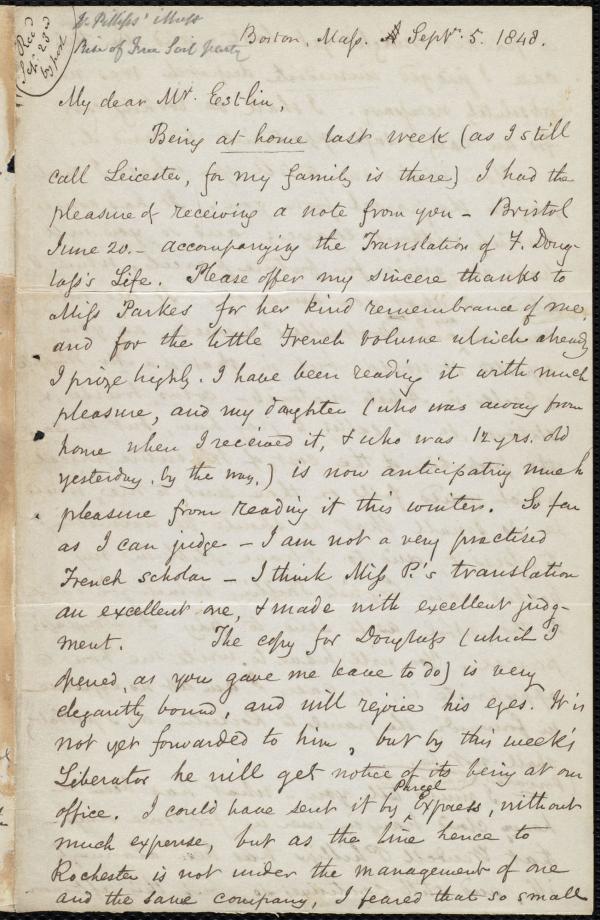 Recd
Sept. 23d
by post
W. Phillips' illness
Rise of Free Soil party
Boston, Mass. Septr. 5. 1848.
My dear Mr. Estlin,
Being at home last week (as I still
call Leicester, for my family is there) I had the
pleasure of receiving a note from you – Bristol
June 20. – accompanying the Translation of F. Doug-
lass's Life. Please offer my sincere thanks to
Miss Parkes for her kind remembrance of me,
and for the little French volume which already
I prize highly. I have been reading it with much
pleasure, and my daughter (who was away from
home when I received it, & who was 12 yrs. old
yesterday, by the way,) is now anticipating much
pleasure from reading it this winter. So far
as I can judge – I am not a very practised
French scholar – I think Miss P.'s translation
an excellent one, & made with excellent judg-
ment. The copy for Douglass (which I
opened, as you gave me leave to do) is very
elegantly bound, and will rejoice his eyes. It is
not yet forwarded to him, but by this week's
Liberator he will get notice of its being at our
office. I could have sent it by Parcel Express, without
much expense, but as the line hence to
Rochester is not under the management of one
and the same company, I feared that so small